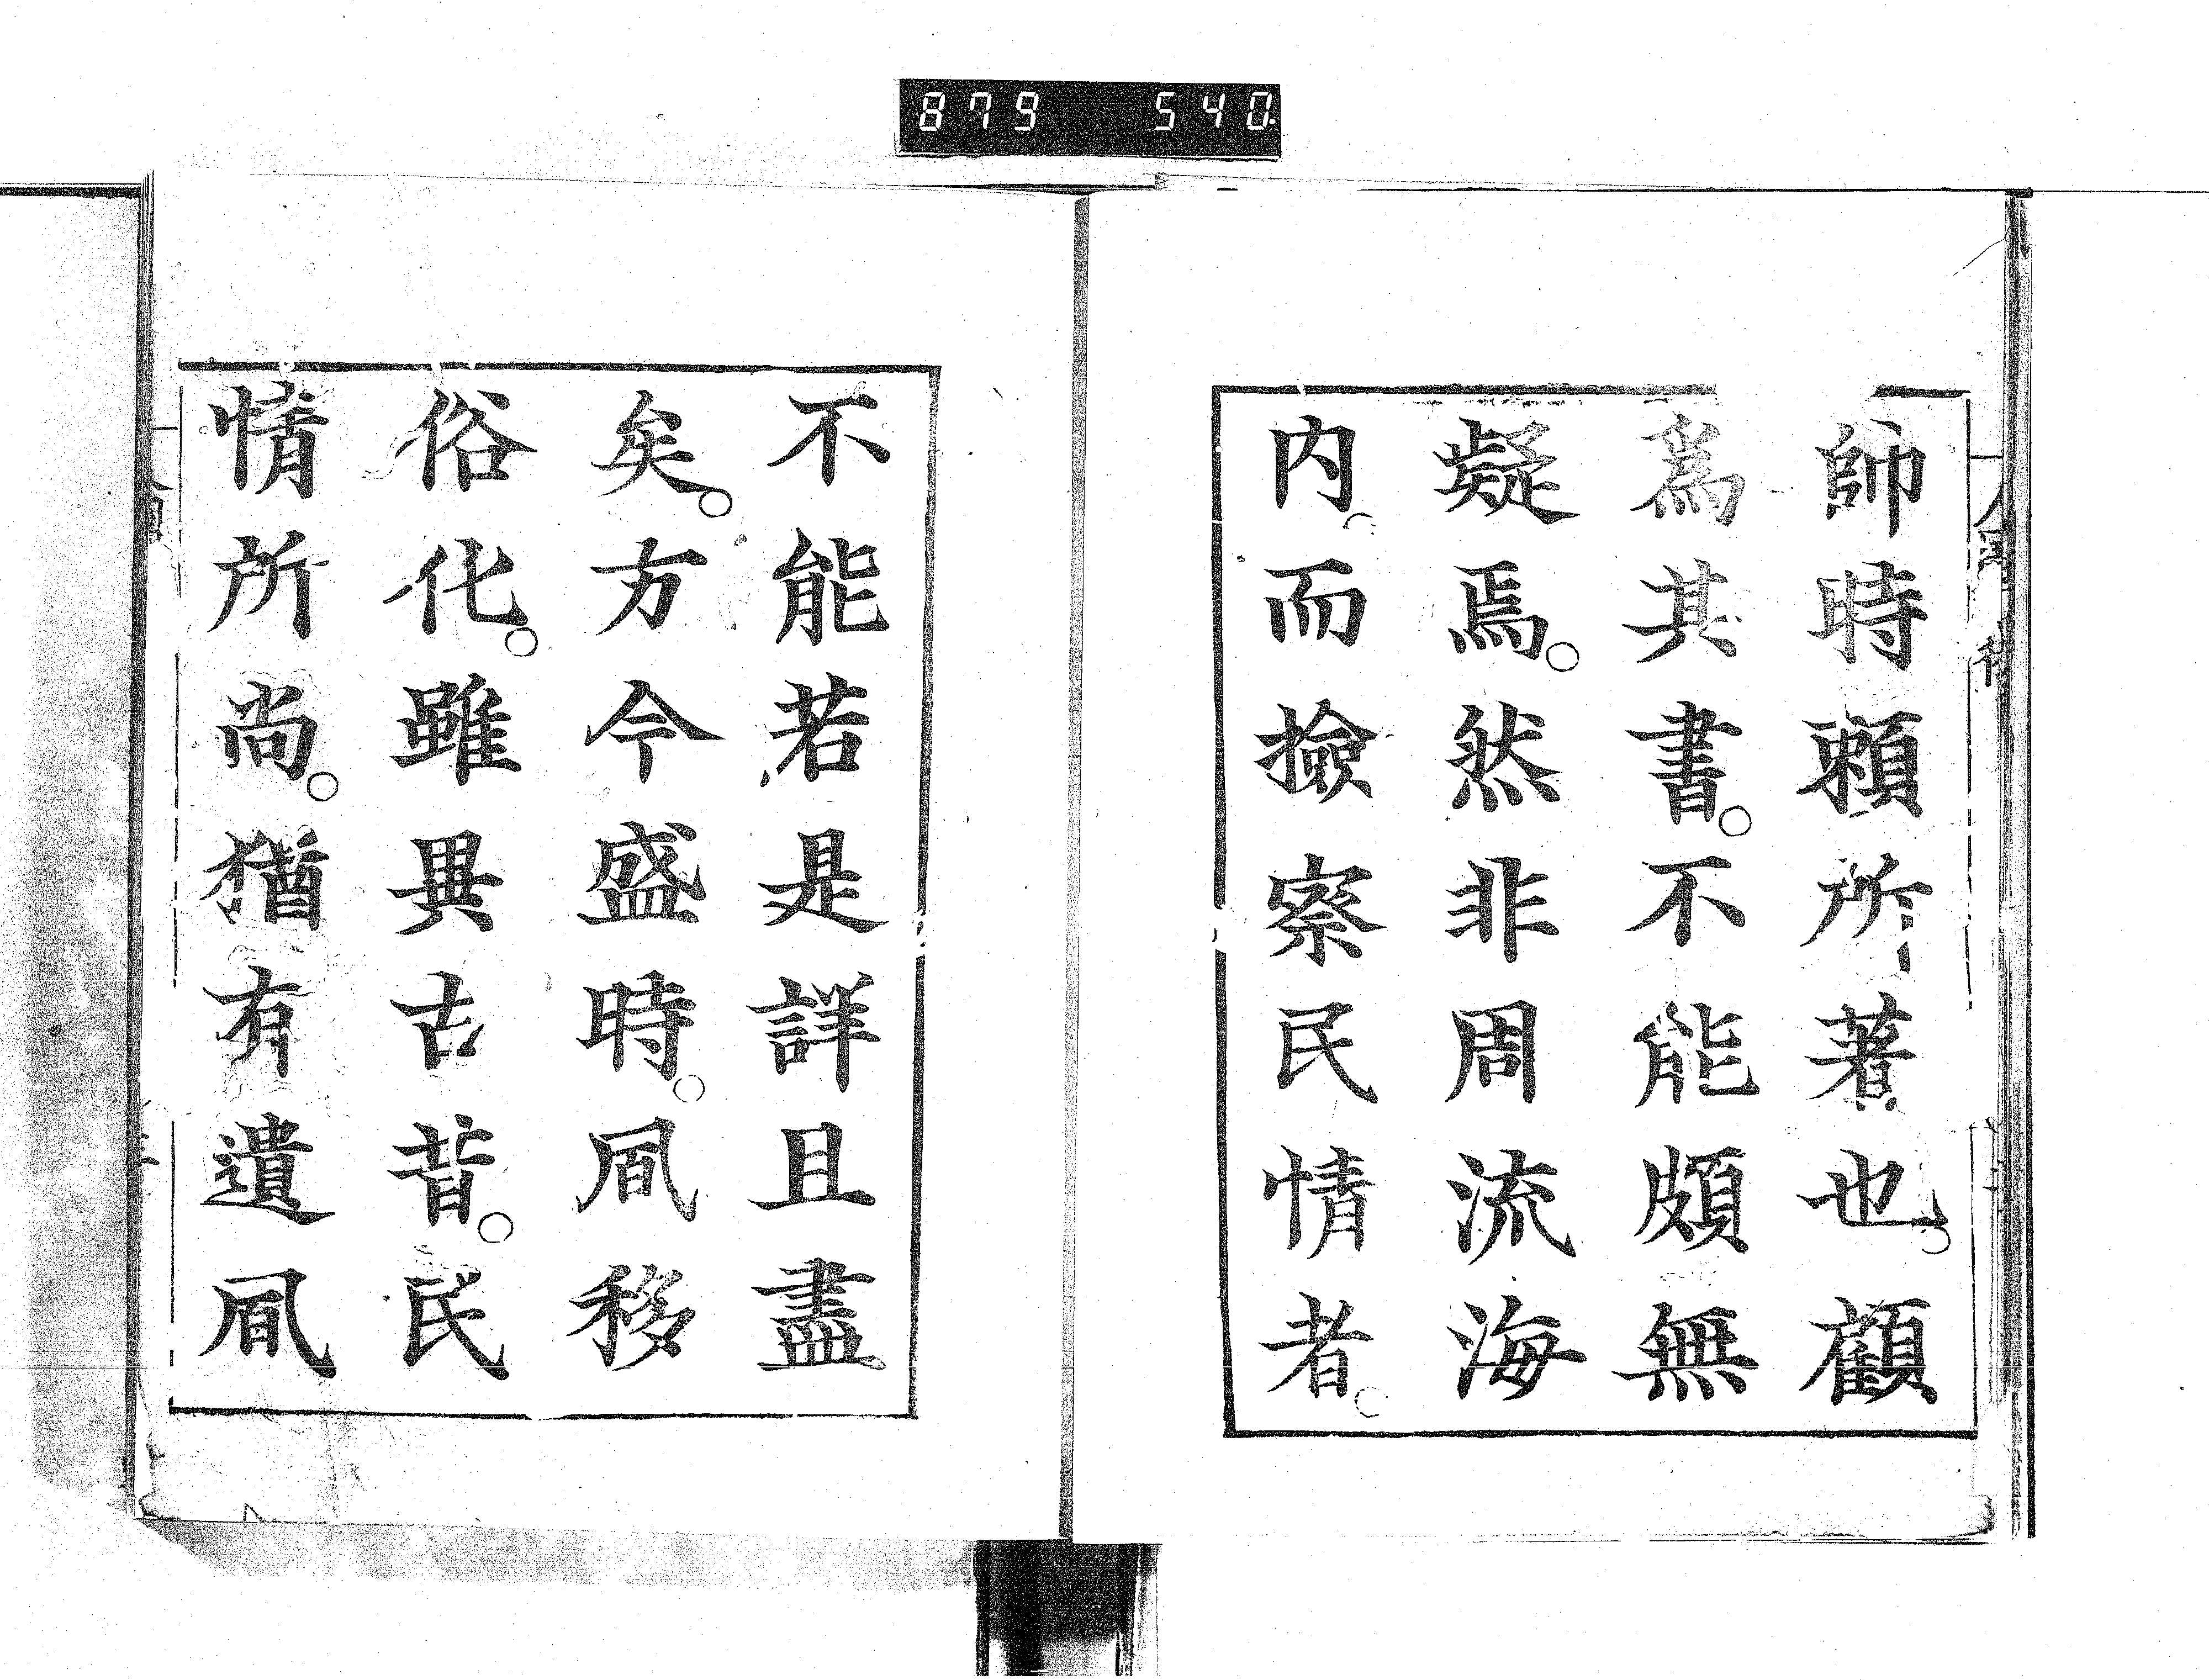 879 540
帥時賴所著也。顧
爲其書。不能頗無
疑焉。然非周流海
内。而撿察民情者。
不能若是詳且盡
矣。方今盛時。凮移
俗化。雖異古昔。民
情所尚。猶有遺凮